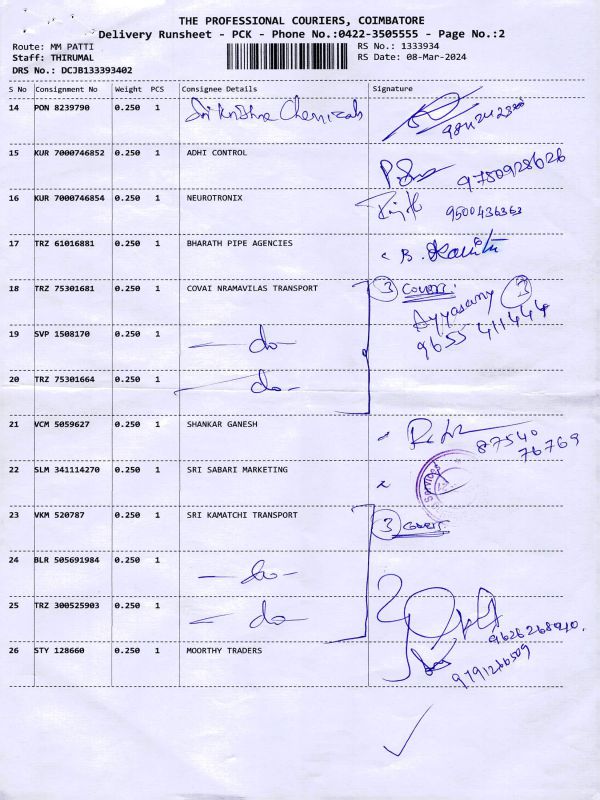 THE PROFESSIONAL COURIERS, COIMBATORE
Delivery Runsheet - PCK - Phone No.:0422-3505555 - Page No.:2
Route: MM PATTI RS No.: 1333934
Staff: THIRUMAL RS Date: 08-Mar-2024
DRS No.: DCJB133393402
S No Consignment No Weight PCS Consignee Details Signature
14 PON 8239790 0.250 1 Sri Krishna Chemicals
15 KUR 7000746852 0.250 1 ADHI CONTROL 9750928626
16 KUR 7000746854 0.250 1 NEUROTRONIX 9500436363
17 TRZ 61016881 0.250 1 BHARATH PIPE AGENCIES B.
18 TRZ 75301681 0.250 1 COVAI NRAMAVILAS TRANSPORT 3 COVERT. 3
Ayyasamy
9655 411444
19 SVP 1508170 0.250 1 -do-
20 TRZ 75301664 0.250 1 -do-
21 VCM 5059627 0.250 1 SHANKAR GANESH 87540
76769
22 SLM 341114270 0.250 1 SRI SABARI MARKETING
23 VKM 520787 0.250 1 SRI KAMATCHI TRANSPORT 3 COVERT.
24 BLR 505691984 0.250 1 -do-
25 TRZ 300525903 0.250 1 -do-
26 STY 128660 0.250 1 MOORTHY TRADERS